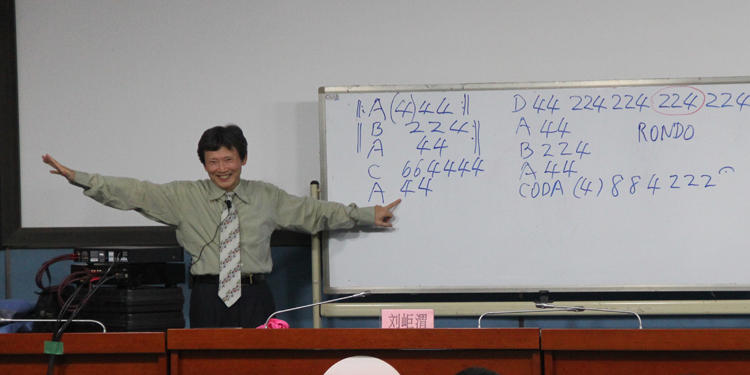 ‖: A (4) 44 :‖
B 224 :‖
A 44
C 664444
A 44
D 44 224 224 224 224
A 44
RONDO
B 224
A 44
CODA (4) 8 8 4 2 2 2
刘岠渭